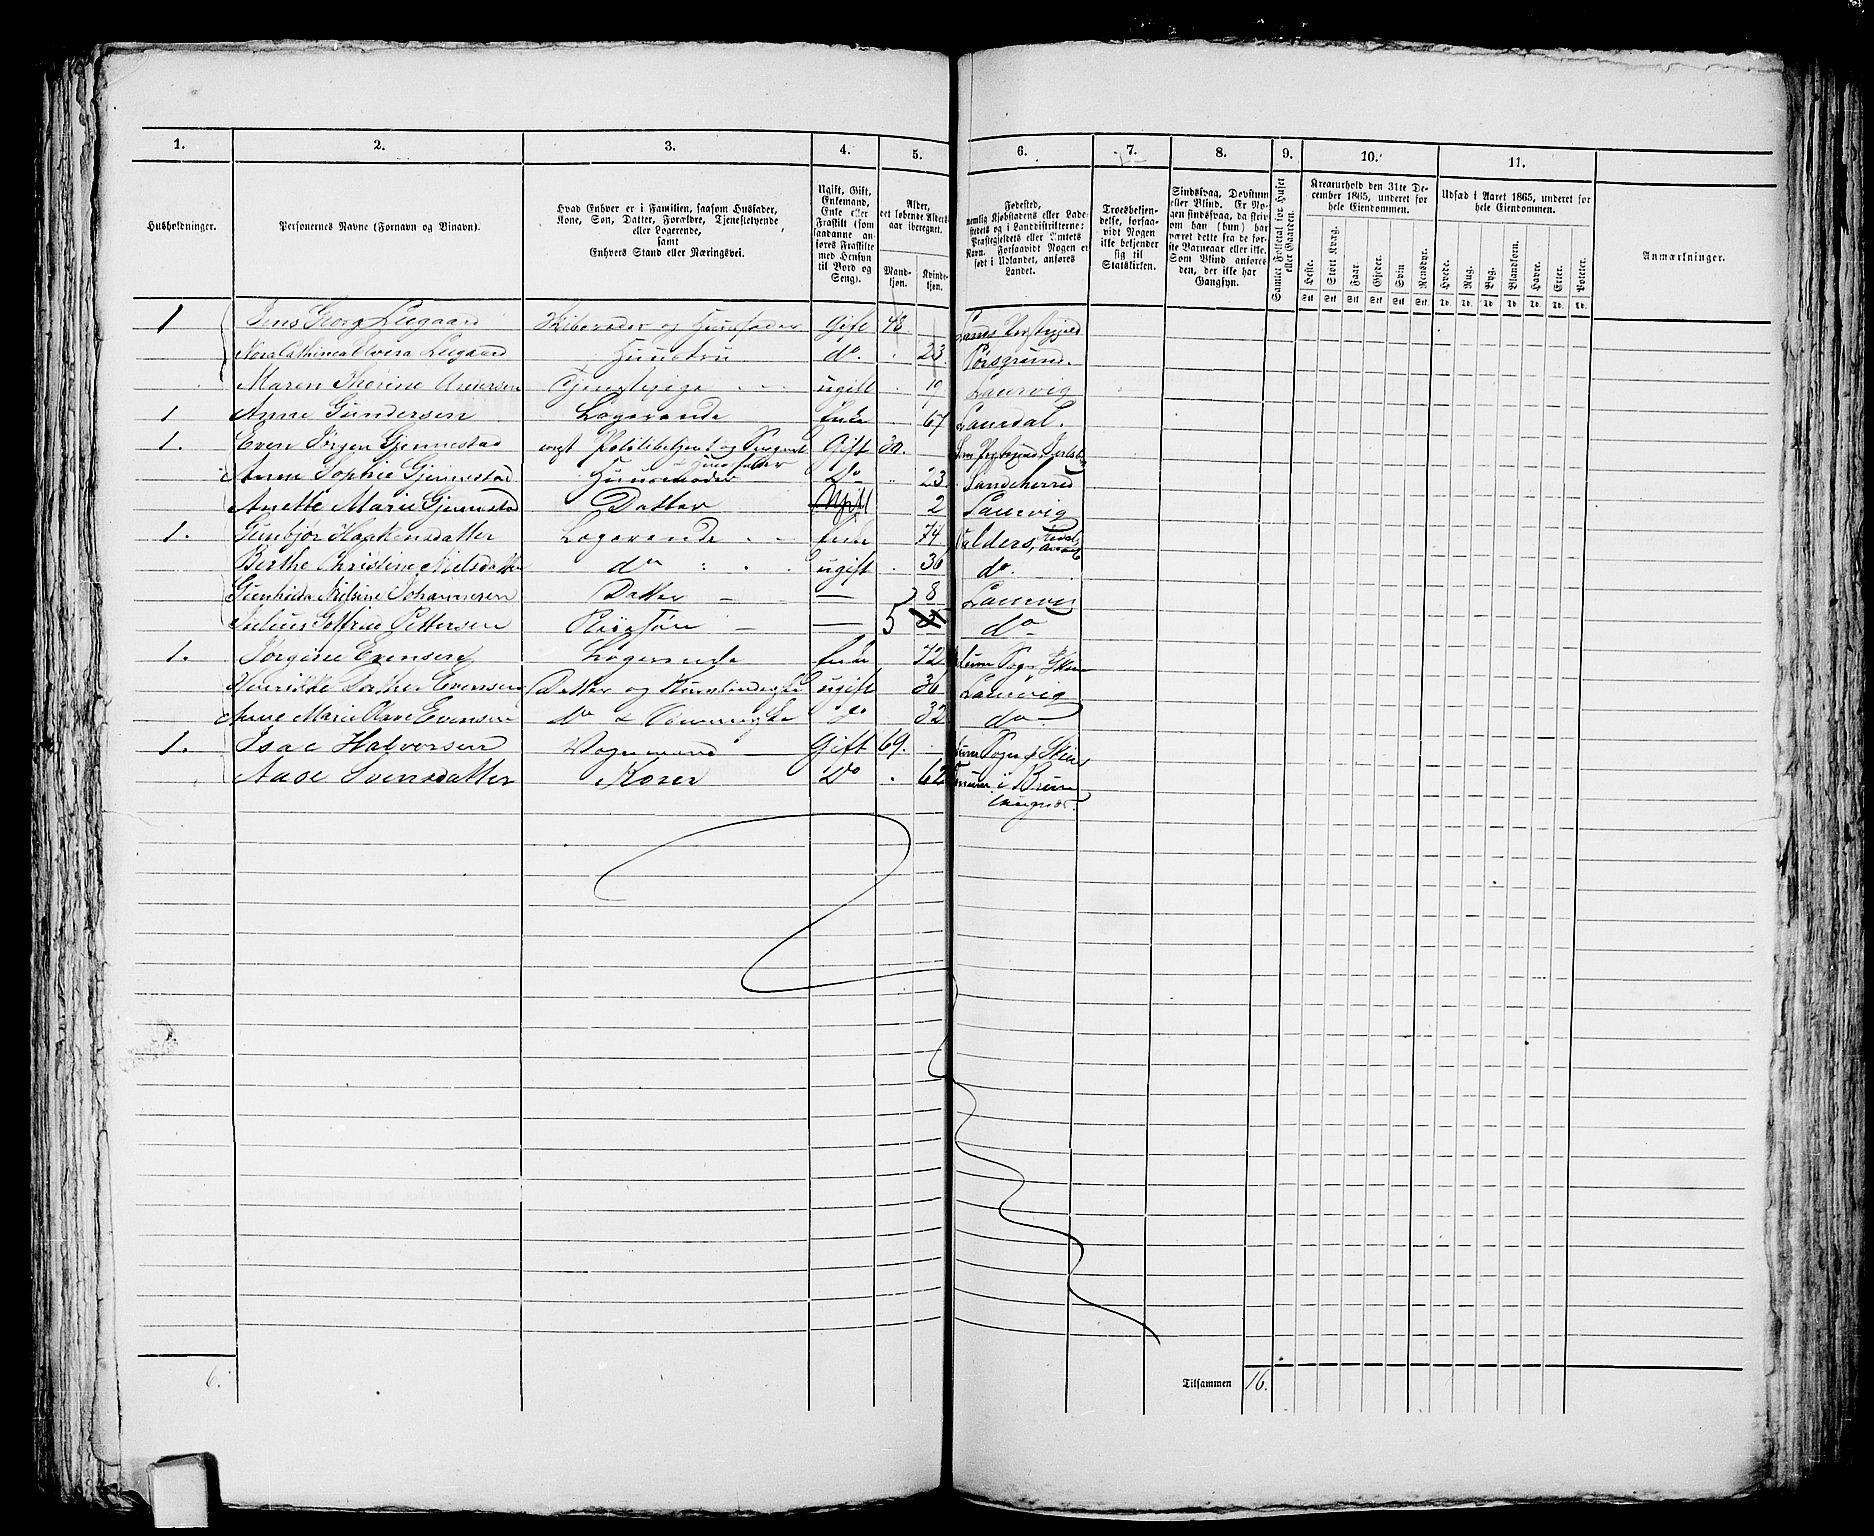 1. 2. 3. 4. 5. 6. 7. 8. 9. 10. 11.
Husholdninger.
Personernes Navne (Fornavn og Binavn).
Hvad Enhver er i Familien, saasom Husfader, Kone, Søn, Datter, Forældre, Tjenestetyende eller Logerende, samt Enhvers Stand eller Næringsvei.
Ugift, Gift, Enkemand, Enke eller Fraskilt (som saadanne anføres Fraskilte med Hensyn til Bord og Seng).
Alder, det løbende Aldersaar iberegnet.
Mandkjøn. Kvindekjøn.
Fødested, nemlig Kjøbstadens eller Ladestedets og i Landdistrikterne: Præstegjeldets eller Amtets Navn. Forsaavidt Nogen er født i Udlandet, anføres Landet.
Troesbekjendelse, forsaavidt Nogen ikke bekjender sig til Statskirken.
Sindssvag, Døvstum eller Blind. Er Nogen sindssvag, da skrives om han (hun) har været dette fra de første Barneaar eller ikke. Som Blind anføres den, der ikke har Gangsyn.
Samlet Folketal for Huset eller Gaarden.
Kreaturhold den 31te December 1865, underet for hele Eiendommen.
Heste. Stort Kvæg. Faar. Gjeder. Sviin Rensdyr.
Stk Stk Stk Stk Stk Stk
Udsæd i Aaret 1865, underet for hele Eiendommen.
Hvede. Rug. Byg. Blandkorn. Havre. Erter. Poteter.
Td. Td. Td. Td. Td. Td. Td.
Anmærkninger.
1 Jens Georg Leegaard og Huusfader Gift 48
Leegaard Huustru do. 23 Porsgrund.
Maren Andersen Tjenestepige ugift 19 Laurvig
1 Anne Gundersen Logerende Enke 67 Laurdal.
1. Even Jørgen Gjennestad Politibetjent og Gift 30.
Huusfader
Anne Sophie Gjennestad Huusmoder Do 23 Sandeherred
Anette Marie Gjennestad Datter Ugift 2 Laurvig
1. Gunbjør Haakensdatter Logerende Enke 74 Valders,
Berthe Christine Nielsdatter do ugift 36 do.
Gunhilda Nilsine Johannesen Datter — 8 Laurvig
Julius Gotfried Pettersen — 5 do
1. Jørgine Evensen Logerende Enke 72 Sogn
Evensen Datter og ugift 36 Laurvig
Anne Marie Olave Evensen do do 32 do
1. Isac Halvorsen Vognmand Gift 69. Sogn
Aase Svensdatter Kone Do 62 i Brunlaugnæs.
6.
Tilsammen 16.